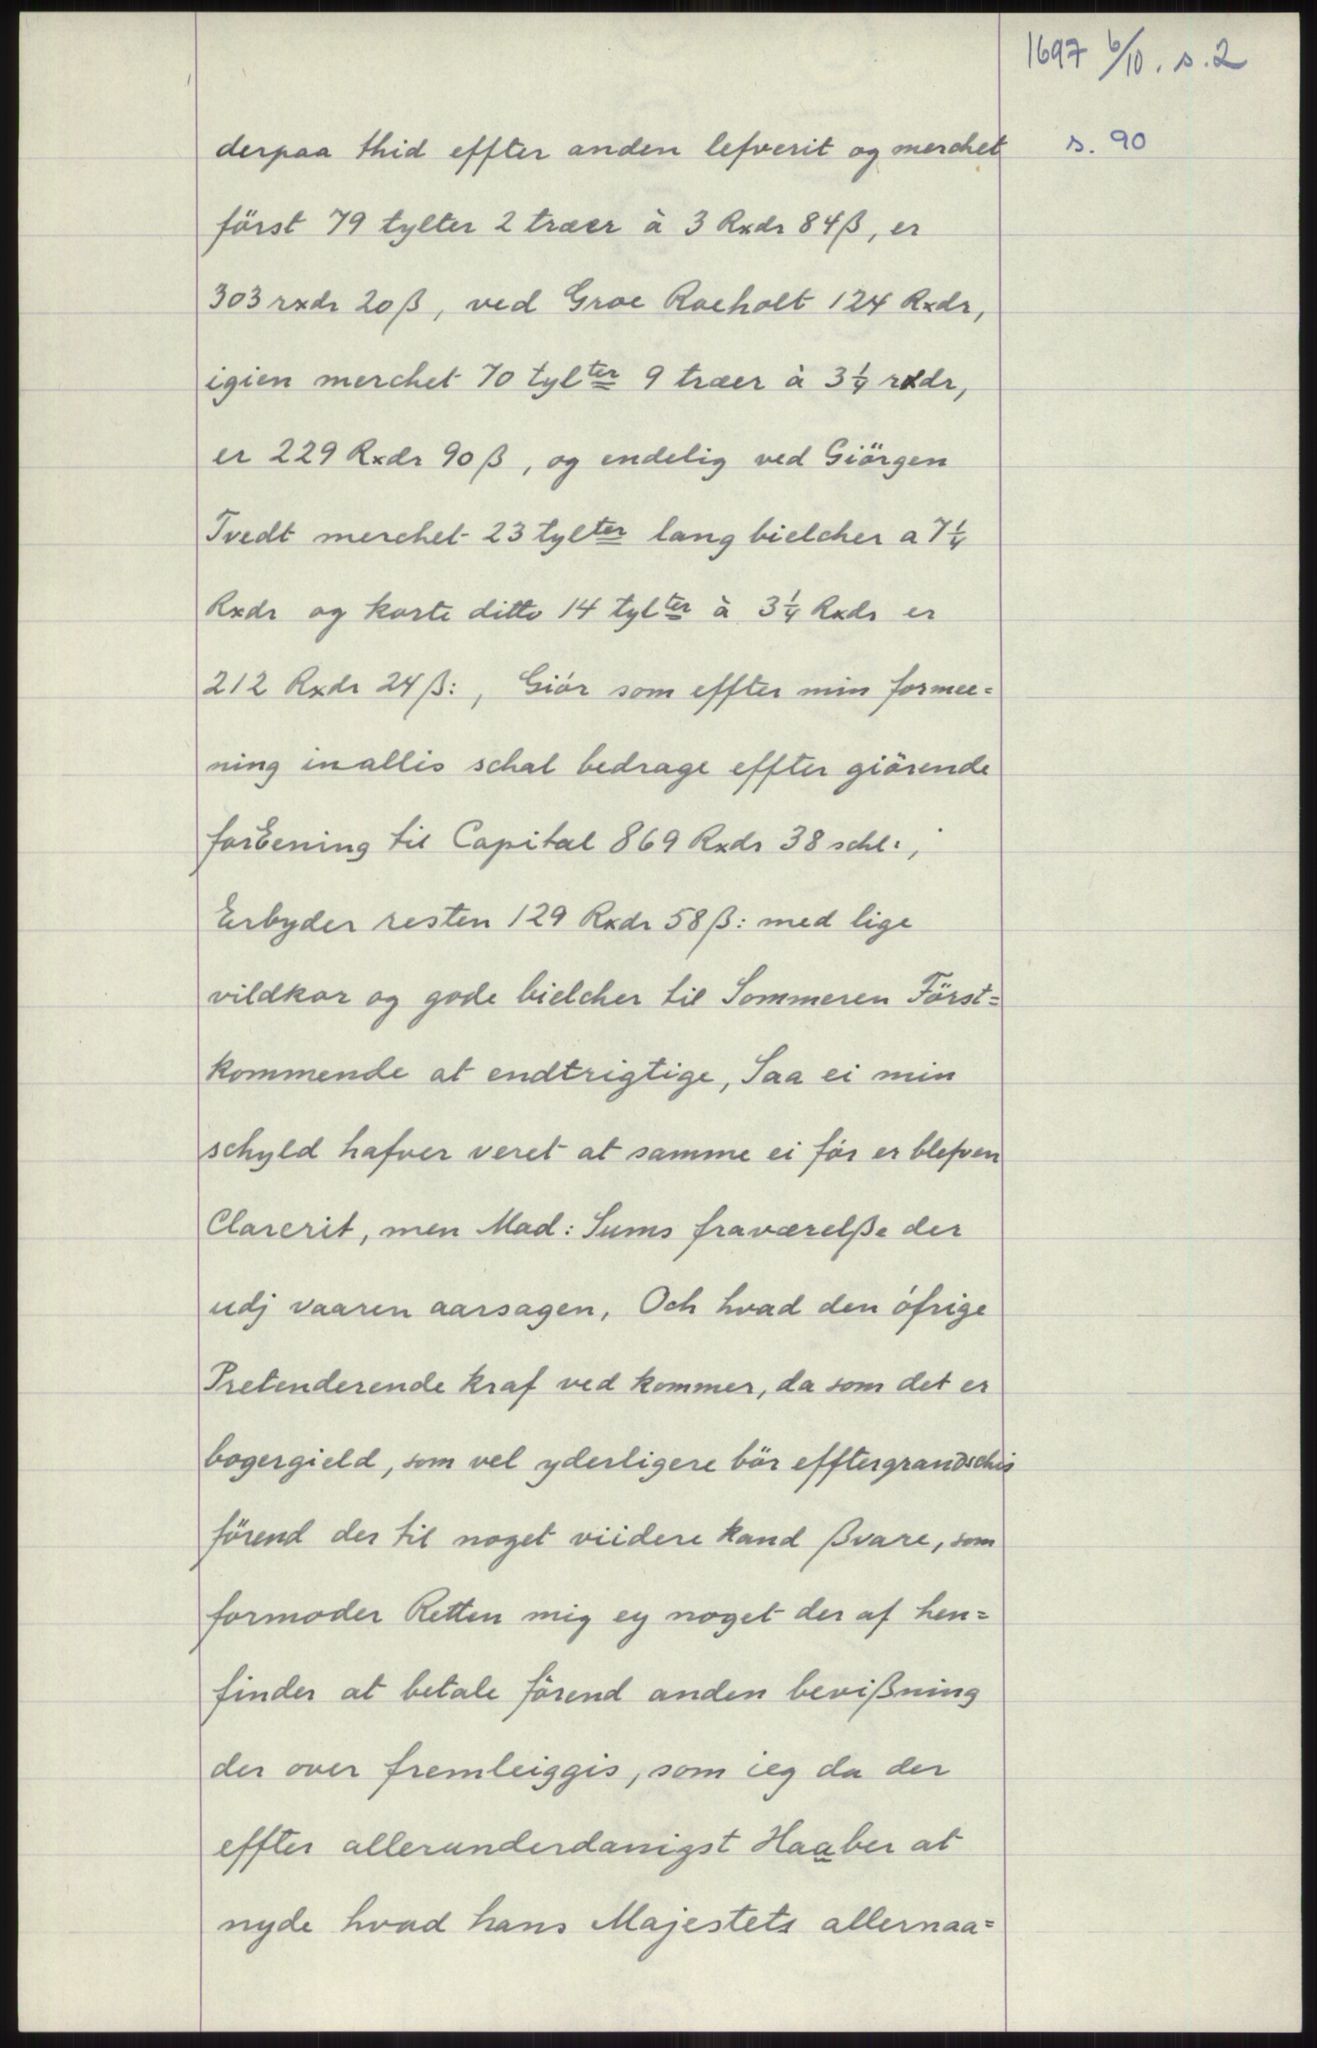 1697 6/10. s. 2
derpaa thid effter anden lefverit og merchet s. 90
först 79 tylter 2 træer à 3 Rxdr 84 ß, er
303 rxdr 20 ß, ved Groe Roeholt 124 Rxdr,
igien merchet 70 tylter 9 træer à 3 1/4 rxdr,
er 229 Rxdr 90 ß, og endelig ved Giörgen
Tvedt merchet 23 tylter lang bielcher a 7 1/4
Rxdr og korte ditto 14 tylter à 3 1/4 Rxdr er
212 Rxdr 24 ß:, Giör som effter min formee=
ning in allis schal bedrage effter giörende
forEening til Capital 869 Rxdr 38 schl:,
Erbyder resten 129 Rxdr 58 ß: med lige
vildkor og gode bielcher til Sommeren Först=
kommende at endtrigtige, Saa ei min
schyld hafver veret at samme ei för er blefven
Clarerit, men Mad: Sums fraværelße der
udj vaaren aarsagen, Och hvad den öfrige
Pretenderende kraf ved kommer, da som det er
bogergield, som vel yderligere bör efftergrandschis
förend der til noget viidere kand ßvare, som
formoder Retten mig ey noget der af hen=
finder at betale förend anden bevißning
der over fremleiggis, som ieg da der
effter allerunderdanigst Haaber at
nyde hvad hans Majestets allernaa=